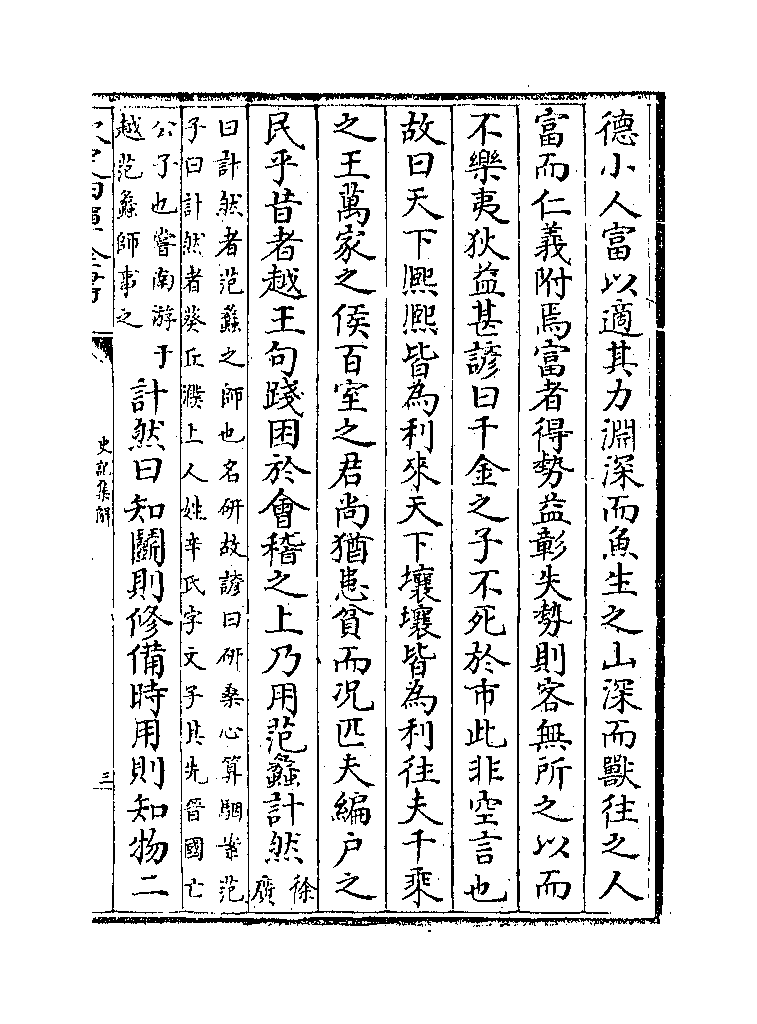 德小人富以適其力淵深而魚生之山深而獸往之人
富而仁義附焉富者得勢益彰失勢則客無所之以而
不樂夷狄益甚諺曰千金之子不死於市此非空言也
故曰天下熈熈皆為利來天下壤壤皆為利往夫千乘
之王萬家之侯百室之君尚猶患貧而况匹夫編户之
民乎昔者越王句踐困於會稽之上乃用范蠡計然徐廣
曰計然者范蠡之師也名研故諺曰研桑心算駰案范
子曰計然者葵丘濮上人姓辛氏字文子其先晉國亡
公子也嘗南游于
越范蠡師事之
計然曰知鬭則修備時用則知物二
史記集解
三